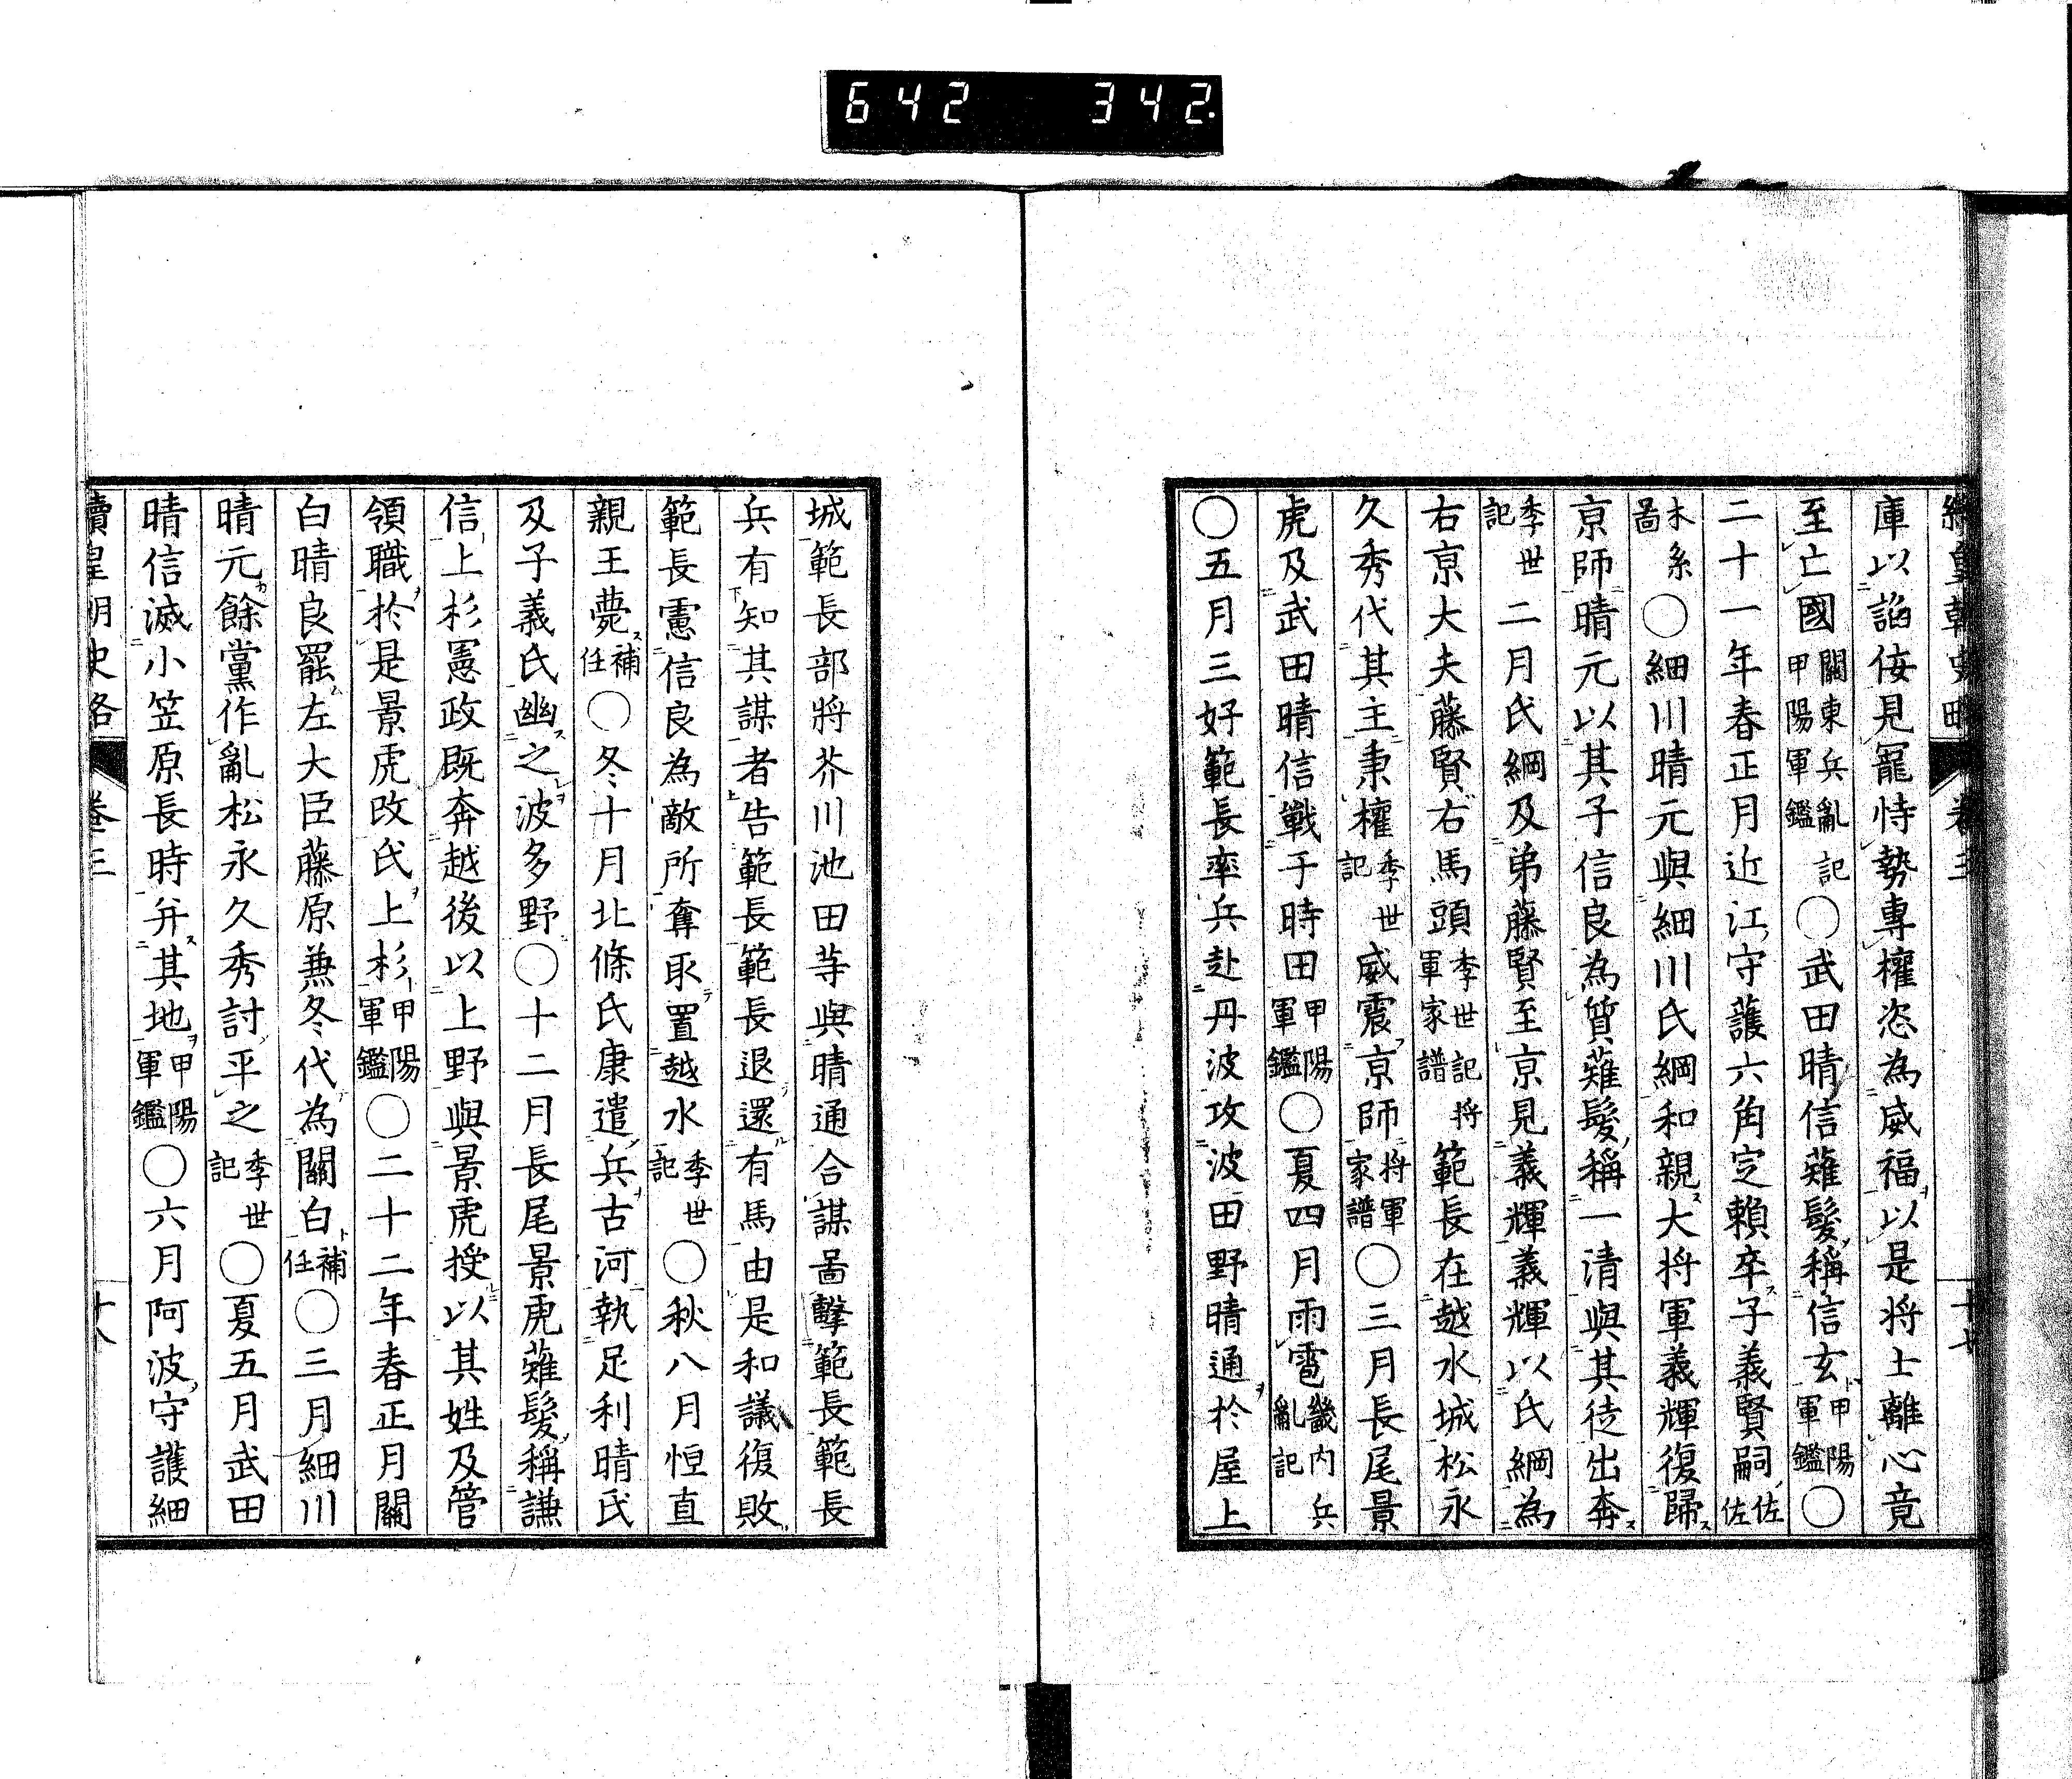 642 342.
續皇朝史略 卷三 十七
庫以諂侫見寵恃勢專權恣為威福以是将士離心竟
至亡國關東兵亂記甲陽軍鑑〇武田晴信薙髮稱信玄甲陽軍鑑〇
二十一年春正月近江守護六角定賴卒子義賢嗣佐佐
木系圖〇細川晴元與細川氏綱和親大将軍義輝復歸
京師晴元以其子信良為質薙髮稱一清與其徒出奔
季世記二月氏綱及弟藤賢至京見義輝義輝以氏綱為
右京大夫藤賢右馬頭季世記将軍家譜範長在越水城松永
久秀代其主秉權季世記威震京師将軍家譜〇三月長尾景
虎及武田晴信戰于時田甲陽軍鑑〇夏四月雨雹畿内兵亂記
〇五月三好範長率兵赴丹波攻波田野晴通於屋上
城範長部將芥川池田等與晴通合謀啚擊範長範長
兵有知其謀者告範長範長退還有馬由是和議復敗
範長慮信良為敵所奪取置越水季世記〇秋八月恒直
親王薨補任〇冬十月北條氏康遣兵古河執足利晴氏
及子義氏幽之波多野〇十二月長尾景虎薙髮稱謙
信上杉憲政既奔越後以上野與景虎授以其姓及管
領職於是景虎改氏上杉甲陽軍鑑〇二十二年春正月關
白晴良罷左大臣藤原兼冬代為關白補任〇三月細川
晴元餘黨作亂松永久秀討平之季世記〇夏五月武田
晴信滅小笠原長時并其地甲陽軍鑑〇六月阿波守護細
續皇朝史略 卷三 十八